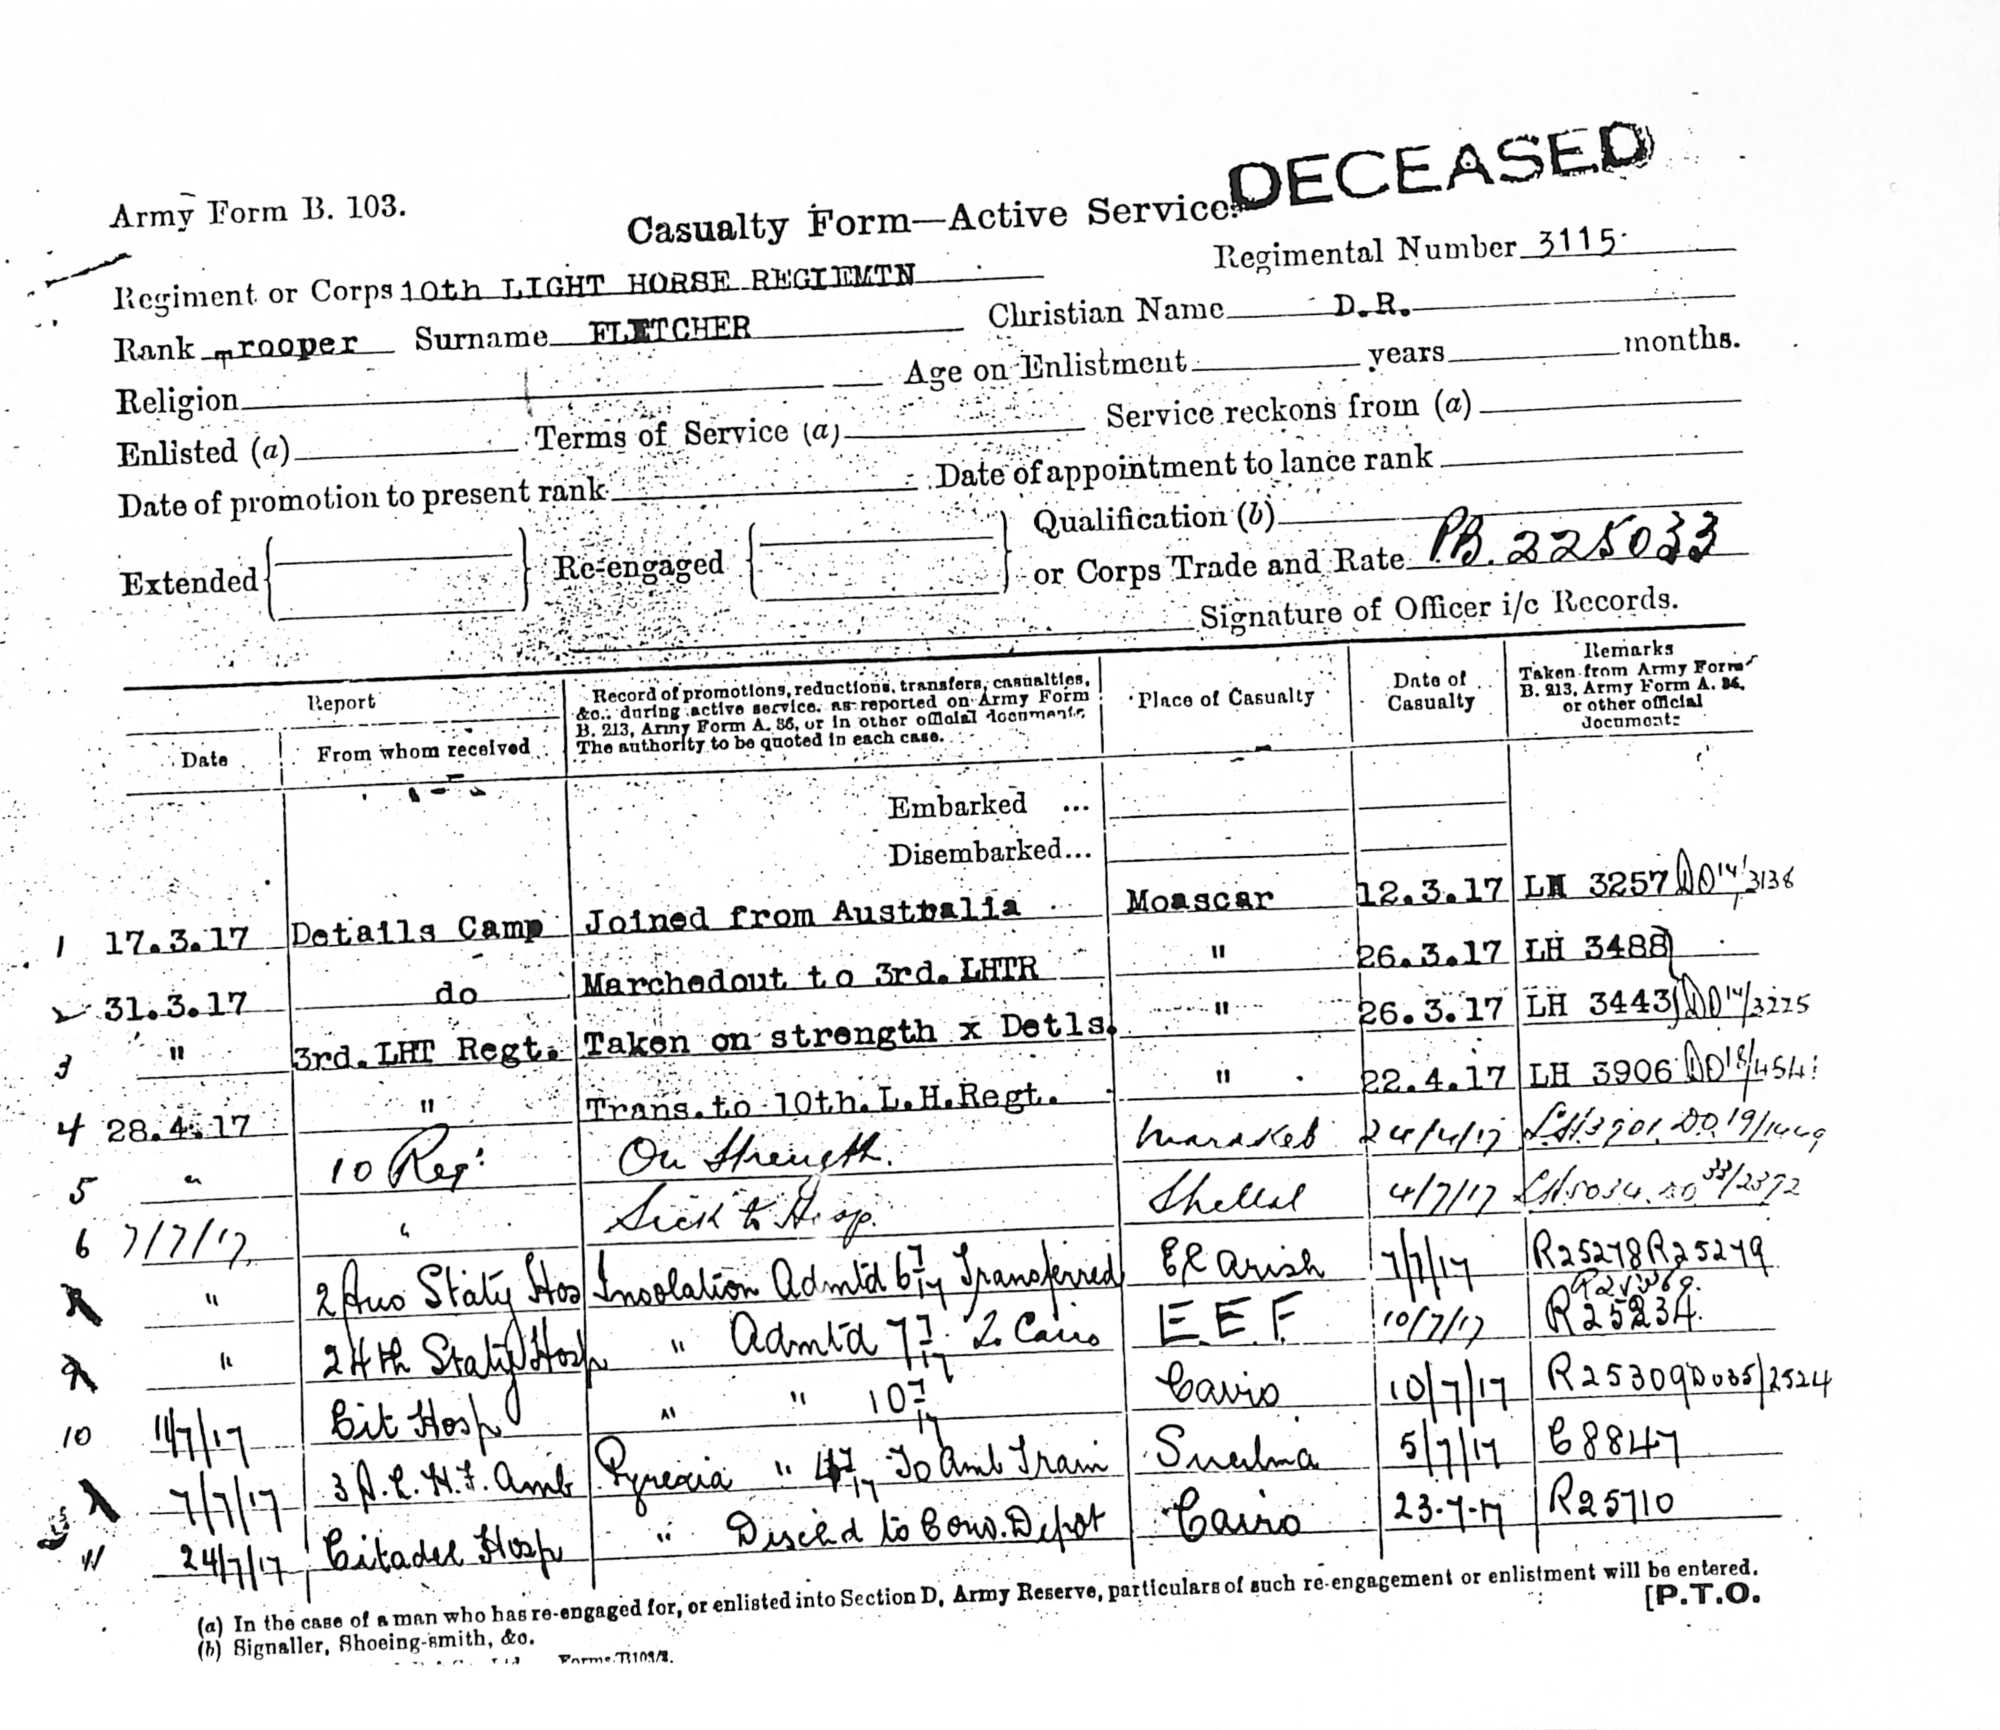 DECEASED
Army Form B. 103.
Casualty Form—Active Service.
Regimental Number 3115.
Regiment or Corps 10th LIGHT HORSE REGIEMTN
Rank Trooper Surname FLETCHER Christian Name D.R.
Religion Age on Enlistment years months.
Enlisted (a) Terms of Service (a) Service reckons from (a)
Date of promotion to present rank Date of appointment to lance rank
Extended Re-engaged Qualification (b)
or Corps Trade and Rate PB. 225033
Signature of Officer i/c Records.
Report
Date From whom received
Record of promotions, reductions, transfers, casualties,
&c., during active service, as reported on Army Form
B. 213, Army Form A. 36, or in other official documents.
The authority to be quoted in each case.
Place of Casualty
Date of
Casualty
Remarks
Taken from Army Form
B. 213, Army Form A. 36,
or other official
documents
Embarked ...
Disembarked...
1 17.3.17 Details Camp Joined from Australia Moascar 12.3.17 LH 3257 DO 14/3138
2 31.3.17 do Marchedout to 3rd. LHTR " 26.3.17 LH 3488
3 " 3rd. LHT Regt. Taken on strength x Detls. " 26.3.17 LH 3443 DO 14/3225
4 28.4.17 " Trans. to 10th. L.H.Regt. " 22.4.17 LH 3906 DO 18/454
5 " 10 Reg: On Strength. Marakeb 24/4/17 LH3901. DO. 19/1449
6 7/7/17 " Sick to Hosp. Shellal 4/7/17 LH5034. DO 33/2372
" 2 Aus Staty Hos Insolation Admtd 6/7/17 Transferred El Arish 7/7/17 R25278 R25279
" 24th Staty Hosp " Admtd 7/7/17 To Cairo E.E.F. 10/7/17 R25234.
10 11/7/17 Cit Hosp " " 10/7/17 Cairo 10/7/17 R25309 DO35/2524
7/7/17 3 A.L.H.F. Amb Pyrexia " 4/7/17 To Amb Train 5/7/17 C8847
11 24/7/17 Citadel Hosp " Disch'd to Conv. Depot Cairo 23-7-17 R25710
(a) In the case of a man who has re-engaged for, or enlisted into Section D, Army Reserve, particulars of such re-engagement or enlistment will be entered.
(b) Signaller, Shoeing-smith, &c.
[P.T.O.
Forms/B103/2.